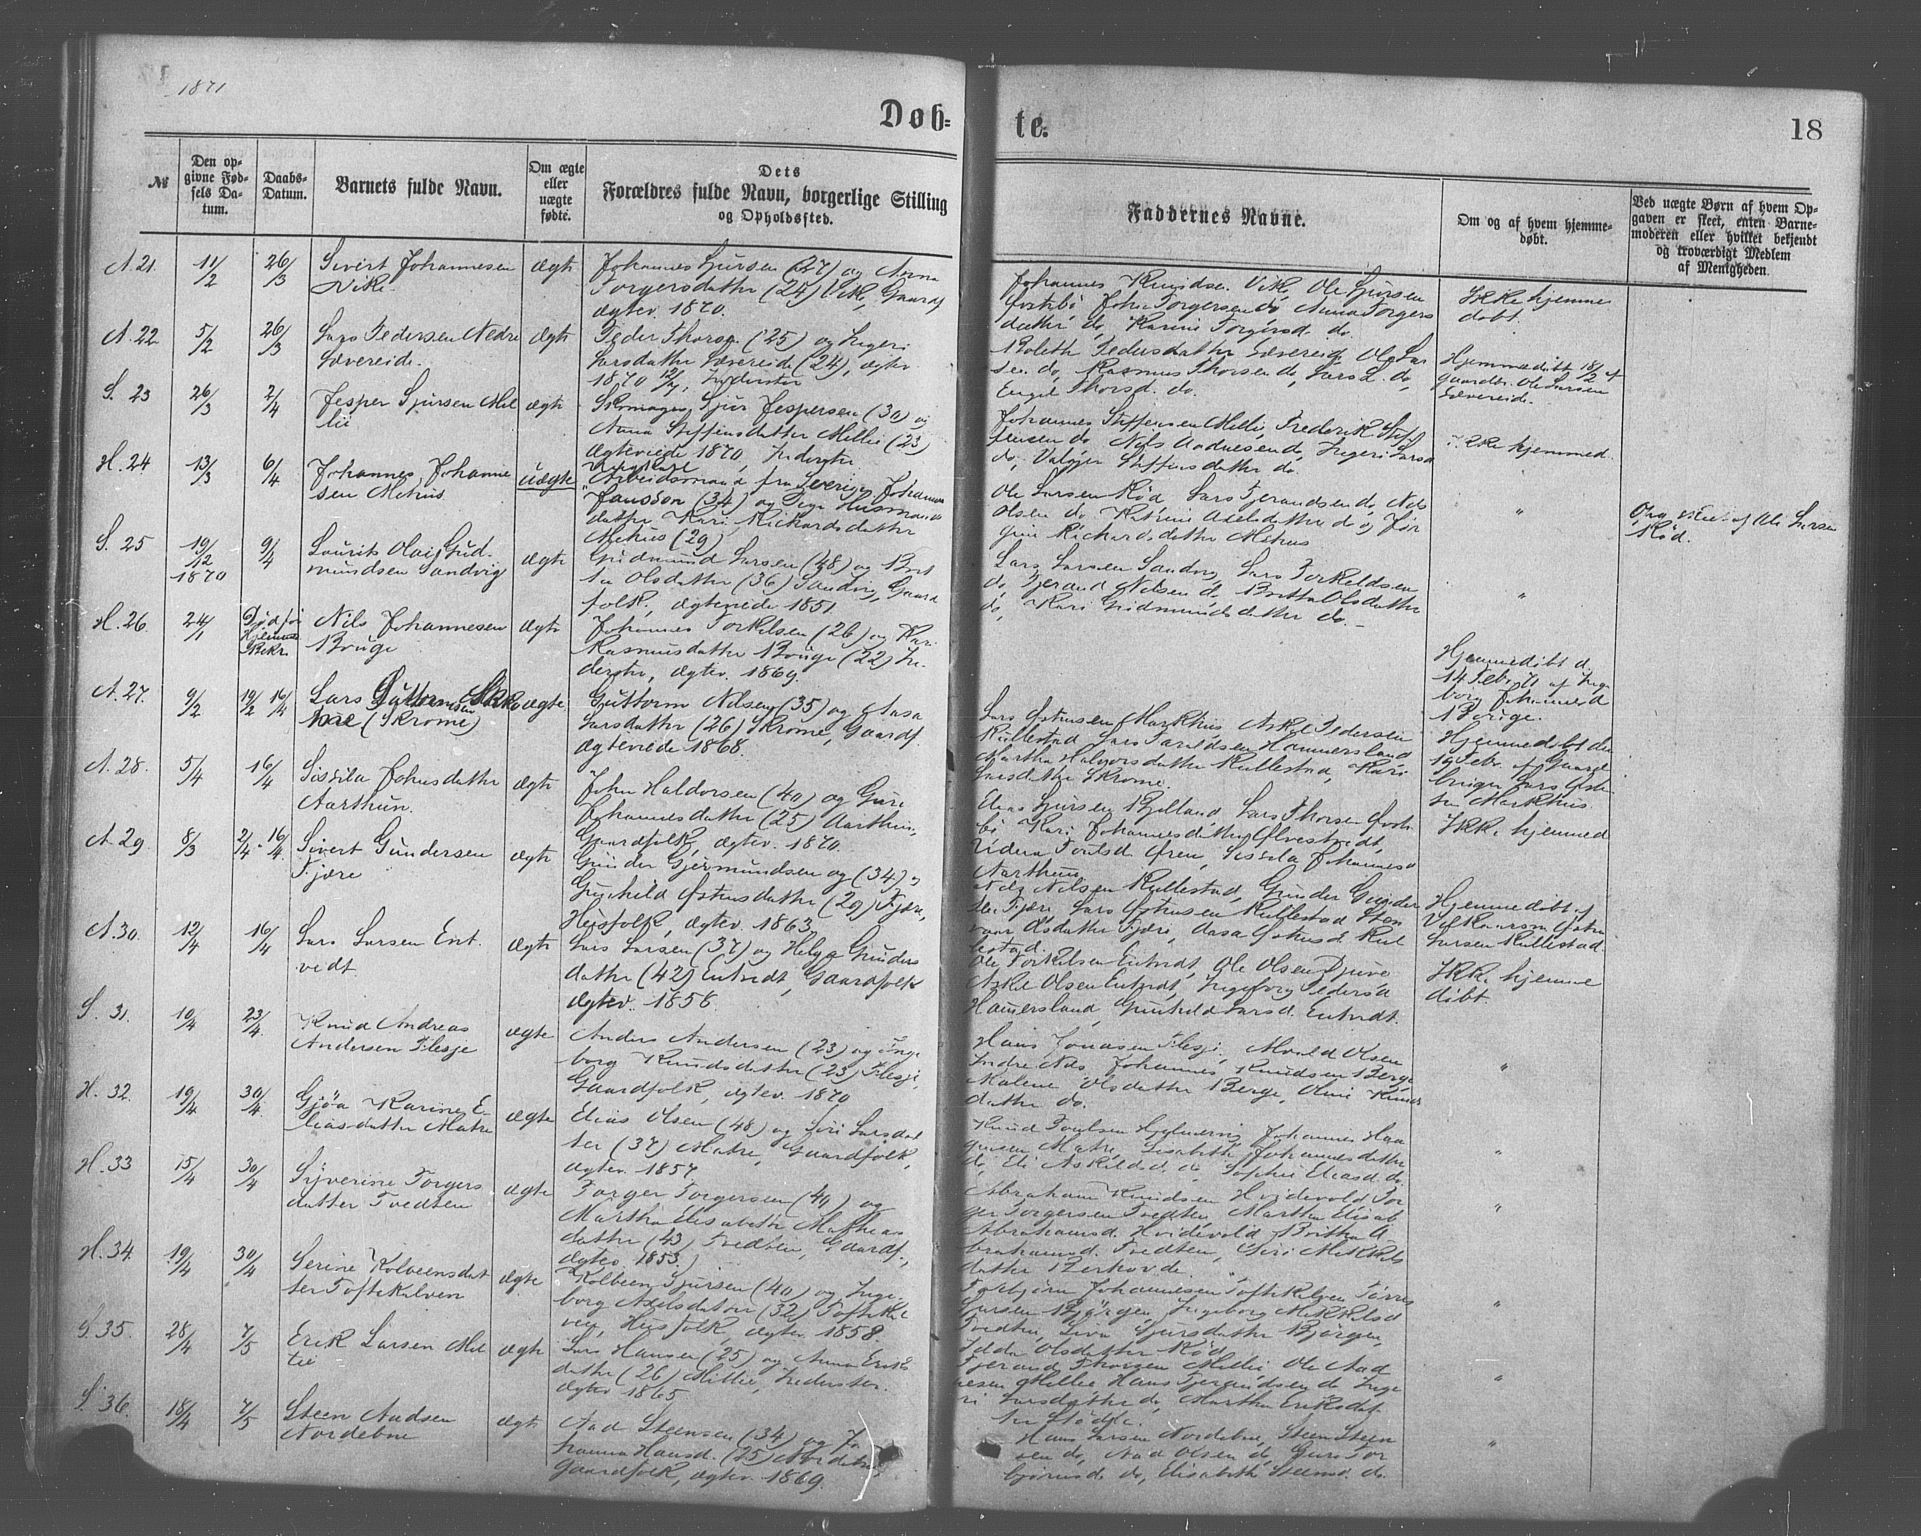 1871
Døb=
te.
18
№
Den op-
givne Fød-
sels Da-
tum.
Daabs-
Datum.
Barnets fulde Navn.
Om ægte
eller
uægte
fødte.
Dets
Forældres fulde Navn, borgerlige Stilling
og Opholdssted.
Faddernes Navne.
Om og af hvem hjemme-
døbt.
Ved uægte Børn af hvem Op-
gaven er skeet, enten Barne-
moderen eller hvilket bekjendt
og troværdigt Medlem
af Menigheden.
A. 21. 11/2 26/3 Sivert Johannesen
Vike
ægte
Johannes Sjursen (27) og Anna
Torgersdatter (24) Vike, Gaardf
ægtev. 1870.
Johannes Knudsen Vike, Ole Sjursen
John Torgersen do Anna Torgers
datter do, Karine Torgersd. do.
Ikke hjemme
døbt.
A. 22 5/2 26/3 Lars Pedersen Nedre
Sævereide.
ægte
Peder Thorsen (25) og Ingeri
Larsdatter Sævereide (24), ægtev
1870 12/7, Inderster
Boleth Pedersdatter Sævereide Ole Lar
sen do, Rasmus Thorsen do, Lars L. do
Engel Thorsd. do.
Hjemmedøbt 18/2 af
Gaardm. Ole Larsen
Sævereide.
S. 23 26/3 2/4 Jesper Sjursen Mel
lie
ægte
Skomager Sjur Jespersen (30) og
Anna Steffensdatter Mellie (23)
ægteviede 1870, Inderster
Johannes Steffensen Mellie, Frederik Stef
fensen do Nils Aadnesen do, Ingeri Larsd
do, Steffensdatter do.
Ikke hjemmed.
H. 24 13/3 6/4 Johannes Johanne
sen Mehus
uægte
Ungkarl
Arbeidsmand fra Sverige Johannes
Jansson (34) og Pige Husmands
datter Kari Rickardsdatter
Mehus (29)
Ole Larsen Rød Lars Tjerandsen do, Nils
Olsen do Katrine Axelsdatter do og Jør
gine Richardsdatter Mehus
"
af Ole Larsen
Rød.
S. 25 19/12
1870
9/4 Laurits Olai Gud-
mundsen Sandvig
ægte
Gudmund Larsen (48) og Brit
ta Olsdatter (36) Sandvig, Gaard
folk, ægteviede 1851
Lars Larsen Sandvig, Lars Torkeldsen
do, Tjerand Nilsen do Britta Olsdatter
do, Kari Gudmundsdatter do. –
"
H. 26. 24/1
Nils Johannesen
Bouge
ægte
Johannes Torkelsen (26) og Kari
Rasmusdatter Bouge (22) In-
derster, ægtev. 1869.
Hjemmedøbt d.
14 Feb. 71 af Inge
borg Johannesd
Bouge.
A. 27. 9/2 19/2 16/4 Lars Guttormsen
(Skrome)
ægte
Guttorm Nilsen (35) og Aasa
Larsdatter (26) Skrome, Gaardf.
ægteviede 1868.
Lars Østensen Markhus, Askel Pedersen
Rullestad Lars Hammersland
Martha Halvorsdatter Rullestad, Kari
Larsdatter Skrome
Hjemmedøbt den
19 Febr. af Gaard
bruger Lars Øste
sen Markhus.
A. 28. 5/4 16/4 Sissila Johnsdatter
Aarthun.
ægte
John Haldorsen (40) og Guri
Johannesdatter (25) Aarthun,
Gaardfolk, ægtev. 1870.
Elias Sjursen Bjelland, Lars Thorsen
Kari Johannesdatter Ølvestvedt,
Øren, Sissila Johannesd
Aarthun
Ikke hjemmed
A. 29 8/3 2/4 - 16/4 Sivert Gundersen
Fjære
ægte
Gunder Gjermundsen og (34) og
Gunhild Østensdatter (29) Fjære,
Husfolk, ægtev. 1863
Nils Nilsen Rullestad, Gunder Gunder
sen Fjære Lars Østensen Rullestad Sten
vaar Olsdatter Fjære, Aasa Østensd Rul
lestad.
Hjemmedøbt af
Østen
Larsen Rullestad
A. 30. 12/4 16/4 Lars Larsen Ent.
vedt.
ægte
Lars Larsen (37) og Helga Gunders
datter (42) Entvedt, Gaardfolk
ægtev. 1858.
Ole Torkelsen Entvedt, Ole Olsen Djuve
Askel Olsen Entvedt, Ingeborg Pedersd
Hamersland, Gunhild Larsd. Entvedt.
Ikke hjemme
døbt.
S. 31. 10/4 23/4 Knud Andreas
Andersen Flesje
ægte
Anders Andersen (23) og Inge
borg Knudsdatter (23) Flesje,
Gaardfolk, ægtev. 1870
Hans Jonasen Flesje, Alvald Olsen
Indre Næs, Johannes Knudsen Berge
Malene Olsdatter Berge, Oline Knuds
datter do.
"
H. 32. 19/4 30/4 Gjøa Karine E-
liasdatter Matre
ægte
Elias Olsen (48) og Siri Larsdat
ter (37) Matre, Gaardfolk,
ægtev. 1857
Knud Poulsen Hjelmervig Johannes Haa
gensen Matre, Lisabeth Johannesdatter
do, Eli Askildsd. do, Sophie Eliasd do.
"
H. 33 15/4 30/4 Syverine Torgers
datter Tvedten
ægte
Torger Torgersen (40) og
Martha Elisabeth Mathias
datter (43) Tvedten, Gaardf.,
ægtev. 1853.
Abraham Knudsen Hvidevold Tor
ger Torgersen Tvedten Martha Elisab
Abrahamsd. Hvidevold Britha A-
brahamsd. Tvedten, Siri Mikkels
datter
"
H. 34. 19/4 30/4 Serine Kolbeensdat
ter Toftekalven
ægte
Kolbeen Sjursen (40) og Inge-
borg Axelsdatter (32) Toftekal
ven, Husfolk, ægtev. 1858.
Torbjørn Johannesen Toftekalven Tørres
Sjursen Bjørgen, Ingeborg Mikkelsd
Tvedten, Siva Sjursdatter Bjørgen,
Olsdatter Rød
"
S. 35. 28/4 7/5 Erik Larsen Mel
lie
ægte
Lars Hansen (25) og Anna Eriks
datter (26) Mellie, Inderster.
ægtev 1865
Tjerand Thorsen Mellie Ole Aad
nesen Mellie Hans Tjerandsen do Inge
ri Larsdatter do, Martha Eriksdat
ter Stødle.
"
S. 36. 18/4 7/5 Steen Aadsen
Nordebøe
ægte
Aad Steensen (34) og Jo
hanna Hansd. (25) Nordebøe
Gaardfolk, ægtev. 1869.
Hans Larsen Nordebøe, Steen Steen
sen do, Aad Olsen do, Guri Tor
bjørnsd do, Elisabeth Steensd. do.
"